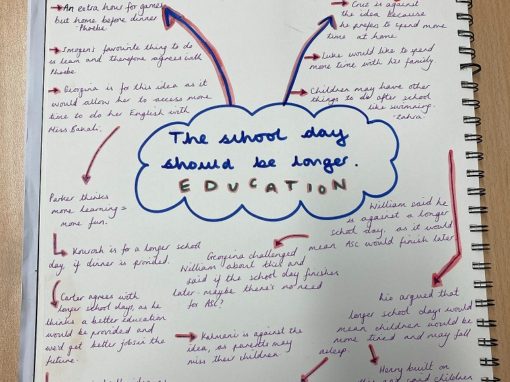 An extra hour for games
but home before dinner
Phoebe.
Imogen's favourite thing to do
is learn and therefore agrees with
Phoebe.
Georgina is for this idea as it
would allow her to access more
time to do her English with
Miss
Parker thinks
more learning =
more fun.
is for a longer school
day, if dinner is provided.
Carter agrees with
longer school days, as he
thinks a better education
would be provided and
we'd get better jobs in the
future.
The school day
should be longer.
EDUCATION
Cruz is against
the idea because
he prefers to spend more
time at home.
Luke would like to spend
more time with his family
Children may have other
things to do after school
like swimming.
-Zahra
William said he
is against a longer
school day, as it would
mean ASC would finish later
Georgina challenged
William about this and
said if the school day finishes
later maybe there's no need
for ASC?
is against the
idea, as parents may
miss their children
argued that
longer school days would
mean children would be
more tired and may fall
asleep.
Henry built on
children